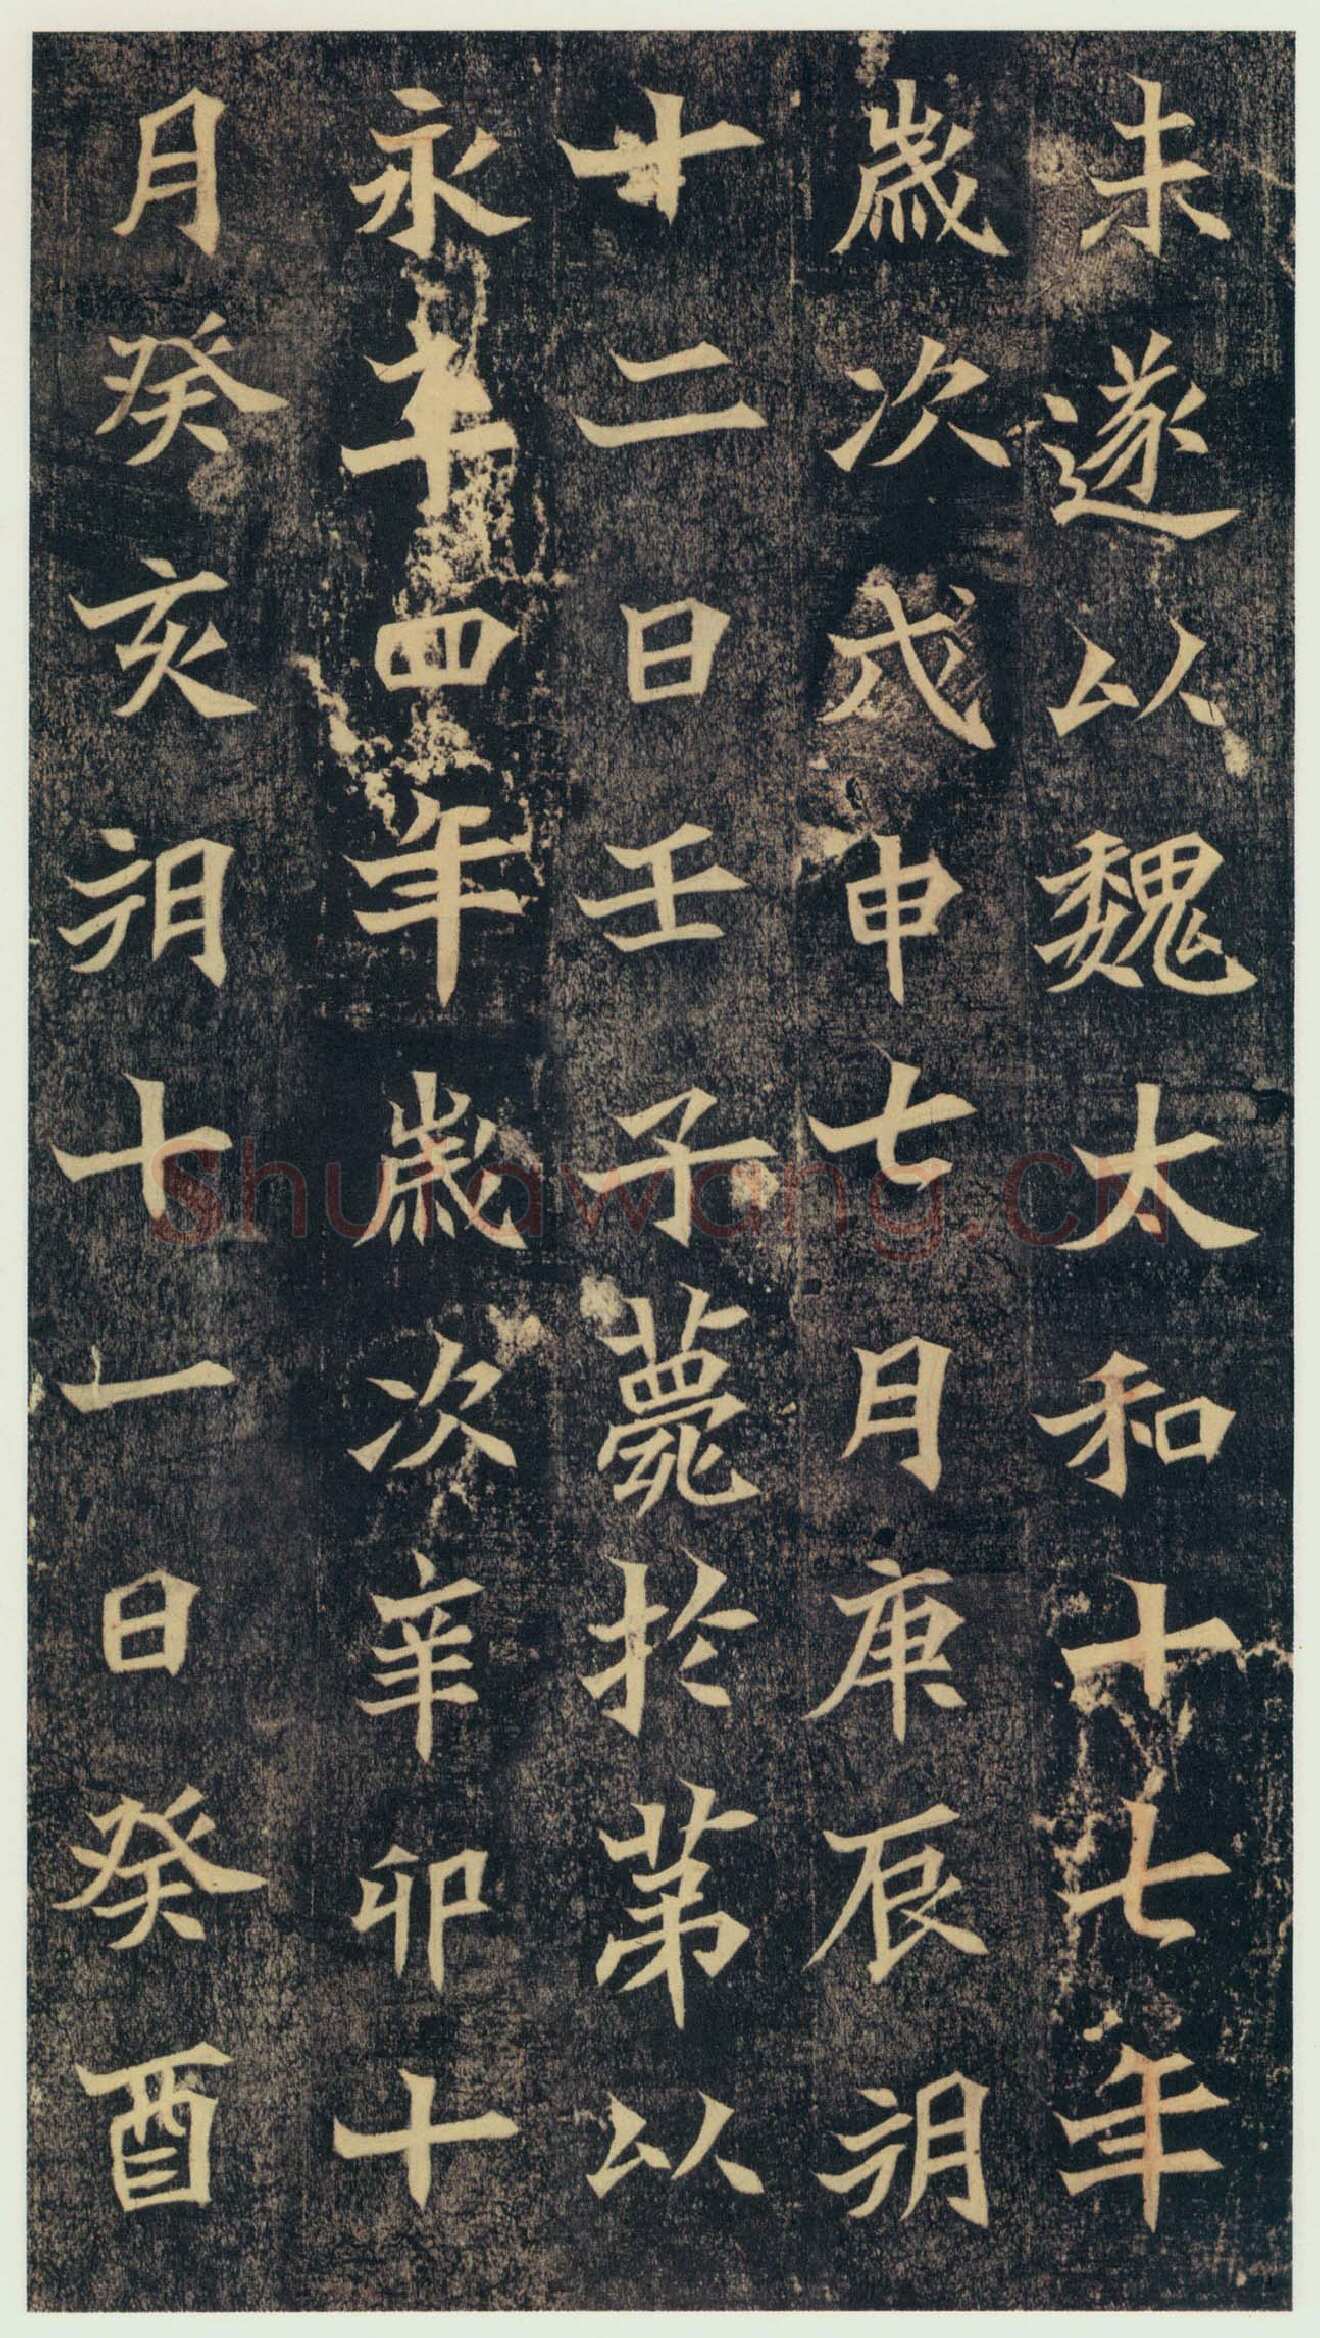 未遂以魏太和十七年
歲次戊申七月庚辰朔
十二日壬子薨於第以
永平四年歲次辛卯十
月癸亥朔十一日癸酉
Shufawang.CN